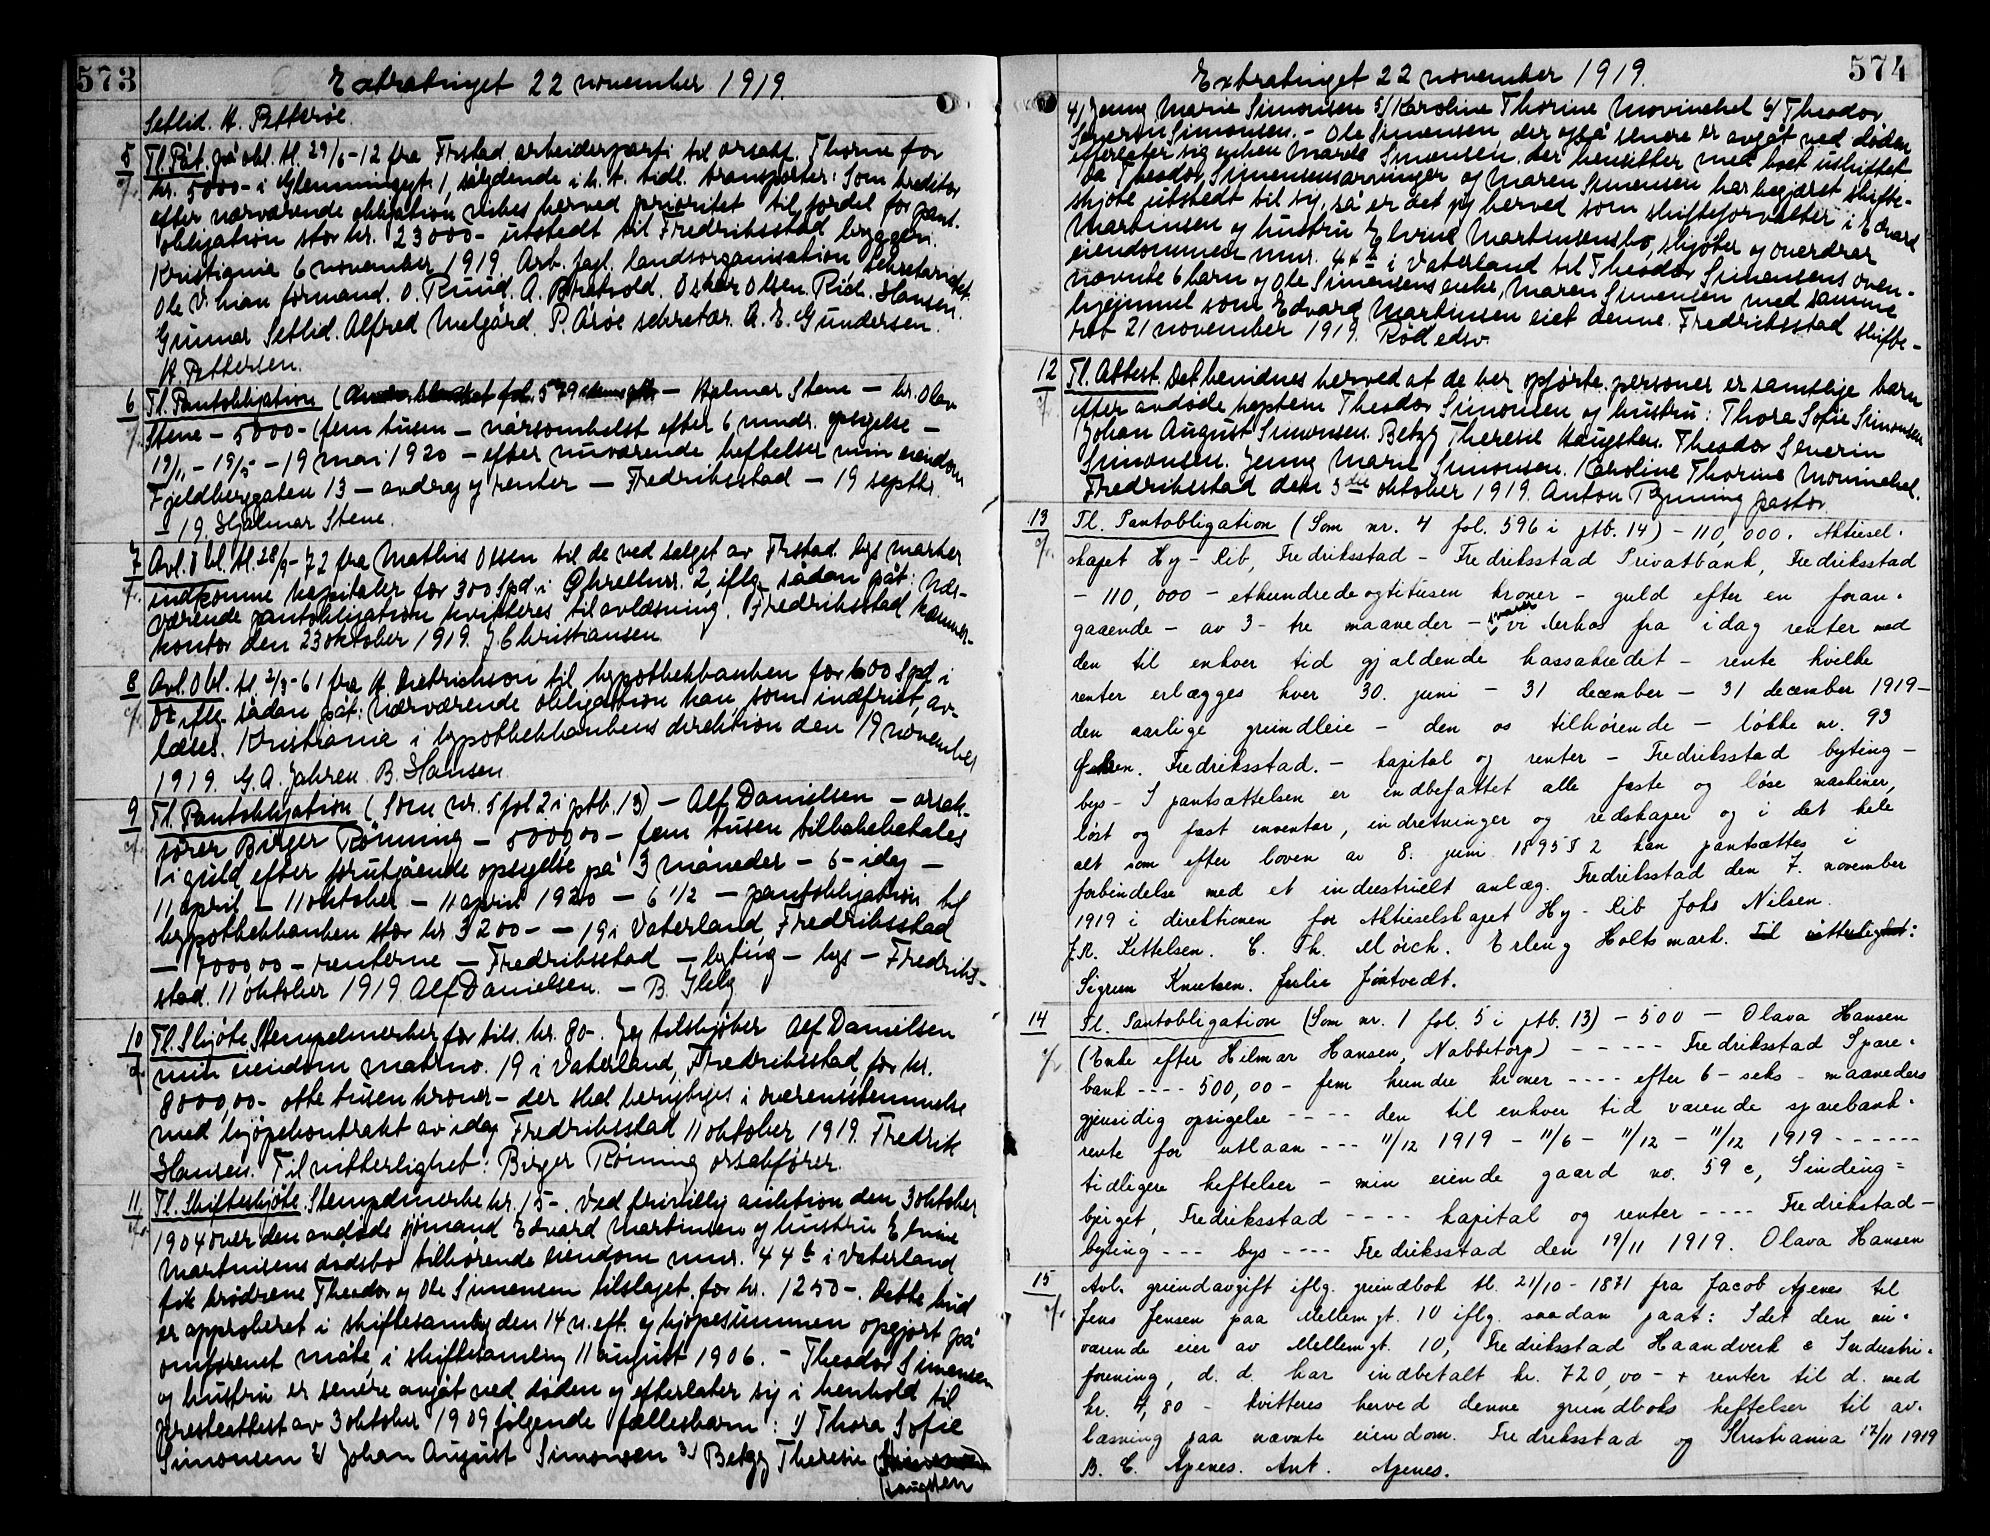 573
Extratinget 22 november 1919.
Setlid. A. Petterøe.
5 Tl. Påt. på obl. tl. 29/6-12 fra Frstad arbeiderparti til orsakf. Thorne for
kr. 5000- i Glemmingegt. 1, sålydende i h. t. tidl. transporter: Som kreditor
efter nærværende obligation vikes herved prioritet til fordel for pant-
obligation stor kr. 23000- utstedt til Fredriksstad bryggeri.
Kristiania 6 november 1919. Arb. fagl. landsorganisation Sekretariatet.
Ole O. Lian formand. O. Rund. A. Bratvold. Oskar Olsen. Rich. Hansen.
Gunnar Setlid. Alfred Melgård. P. Arøe sekretær. A. E. Gundersen.
A. Pettersen.
6 Tl. Pantobligation – Hjalmar Stene – hr. Olav
Stene – 5000- (fem tusen – nårsomhelst efter 6 mndr. opsigelse –
19/11 – 19/5 – 19 mai 1920 – efter nuværende heftelser min eiendom
Fjeldberggaten 13 – avdrag og renter – Fredriksstad – 19 septbr.
– 19. Hjalmar Stene.
7 Avl. Obl. tl. 28/9-72 fra Mathis Olsen til de ved salget av Frstad bys marker
indkomne kapitaler for 300 Spd. i Ghrettnr. 2, iflg. sådan påt: Nær-
værende pantobligation kvitteres til avlæsning. Fredriksstad kæmner-
kontor den 23 oktober 1919. J Christiansen
8 Avl. Obl. tl. 2/3-61 fra A. Dietrichson til hypothekbanken for 600 Spd. i
iflg. sådan påt: Nærværende obligation kan, som indfriet, av-
læses. Kristiania i hypothekbankens direktion den 19 november
1919. G. A. Jahren. B. Hansen.
9 Tl. Pantobligation (Som nr. 5 fol 2 i ptb. 13) – Alf Danielsen – orsak-
fører Birger Rönning – 5000,00 – fem tusen tilbakebetales
i guld efter forutgående opsigelse på 3 måneder – 6 – idag –
11 april – 11 oktober – 11 april 1920 – 6 1/2 – pantobligation til
hypothekbanken stor kr 3200- – 19 i Vaterland, Fredriksstad
– 7000,00 – renterne – Fredriksstad – byting – bys – Fredriks-
stad. 11 oktober 1919. Alf Danielsen. – B.
10 Tl. Skjøte. Stempelmerker for tils. kr. 80-. Jeg tilskjøter Alf Danielsen
min eiendom matrno. 19 i Vaterland, Fredriksstad, for kr.
8000,00- otte tusen kroner – der skal berigtiges i overensstemmelse
med kjøpekontrakt av idag. Fredriksstad 11 oktober 1919. Fredrik
Hansen. Til vitterlighet: Birger Rönning orsakfører.
11 Tl. Skifteskjøte. Stempelmerke kr. 15-. Ved frivillig auktion den 3 oktober
1904 over den avdøde sjømand Edvard Martinsen og hustru Elvine
Martinsens dødsbo tilhørende eiendom mnr. 44b i Vaterland
fik brødrene Theodor og Ole Simensen tilslaget for kr. 1250-. Dette bud
er approberet i skiftesamling den 14 n. eft. og kjøpesummen opgjort på
omforenet måte, i skiftesamling 11 august 1906. – Theodor Simensen
og hustru er senere avgåt ved døden og efterlater sig i henhold til
presteattest av 3 oktober 1909 følgende fællesbarn: 1/ Thora Sofie
Simonsen 2/ Johan August Simonsen 3/ Betzy Theresie
Haugsten
574
Extratinget 22 november 1919.
4/ Jenny Marie Simonsen 5/ Karoline Thorine Movinckel 6/ Theodor
Severin Simonsen. – Ole Simensen, der også senere er avgåt ved døden
efterlater sig enken Maren Simensen, der hensitter med boet uskiftet
Da Theodor Simensens arvinger og Maren Simensen har begjæret skifte-
skjøte utstedt til sig, så er det jeg herved som skifteforvalter i Edvard
Martinsen og hustru Elvine Martinsens bo, skjøter og overdrar
eiendommen mnr. 44b i Vaterland til Theodor Simensens oven-
nævnte 6 barn og Ole Simensens enke, Maren Simensen med samme
hjemmel som Edvard Martinsen eiet denne. Fredriksstad skifte-
ret 21 november 1919. Rød edsv.
12 Tl. Attest. Det bevidnes herved at de her opførte personer er samtlige barn
efter avdøde kaptein Theodor Simonsen og hustru: Thora Sofie Simonsen
Johan August Simonsen. Betzy Theresie Haugsten. Theodor Severin
Simonsen. Jenny Marie Simonsen. Karoline Thorine Movinckel.
Fredriksstad den 3die oktober 1919. Anton Rynning pastor
13 Tl. Pantobligation (Som nr. 4 fol. 596 i ptb. 14) – 110,000. Aktiesel-
skapet Hy-Rib, Fredriksstad – Fredriksstad Privatbank, Fredriksstad
– 110,000 – ethundredeogtitusen kroner – guld efter en foran-
gaaende – av 3 – tre maaneder – svarer vi derhos fra idag renter med
den til enhver tid gjældende kassakredit – rente hvilke
renter erlægges hver 30. juni – 31 december – 31 december 1919 –
den aarlige grundleie – den os tilhørende – løkke nr. 93
Fredriksstad. – kapital og renter – Fredriksstad byting –
bys – I pantsættelsen er indbefattet alle faste og løse maskiner,
løst og fast inventar, indretninger og redskaper og i det hele
alt som efter loven av 8. juni 1895 § 2 kan pantsættes i
forbindelse med et industrielt anlæg. Fredriksstad den 7. november
1919 i direktionen for Aktieselskapet Hy-Rib Johs Nilsen.
J. R. Kittelsen. C. Th. Mörch. Erling Holtsmark. Til vitterlighet:
Sigrun Knutsen. Julie Jörtvedt.
14 Tl. Pantobligation (Som nr. 1 fol. 5 i ptb. 13) – 500 – Olava Hansen
(Enke efter Hilmar Hansen, Nabbetorp) ----- Fredriksstad Spare-
bank ---- 500,00 – fem hundre kroner ---- efter 6 – seks – maaneders
gjensidig opsigelse ----- den til enhver tid værende sparebank-
rente for utlaan --- 11/12 1919 – 11/6 – 11/12 – 11/12 1919 ------
tidligere heftelser – min eiende gaard no. 59 c, Sinding=
bjerget, Fredriksstad ---- kapital og renter ---- Fredrikstad –
byting --- bys ---- Fredriksstad den 19/11 1919. Olava Hansen
15 Avl. grundavgift iflg. grundbok tl. 21/10-1871 fra Jacob Apenes til
Jens Jensen paa Mellemgt. 10 iflg. saadan paat: Idet den nu-
værende eier av Mellemgt. 10, Fredriksstad Haandverk & Industri-
forening, d. d. har indbetalt kr. 720,00- + renter til d. med
kr. 4,80 – kvitteres herved denne grundboks heftelser til av-
læsning paa nævnte eiendom. Fredriksstad og Kristiania 17/11 1919
B. C. Apenes. Ant. Apenes.